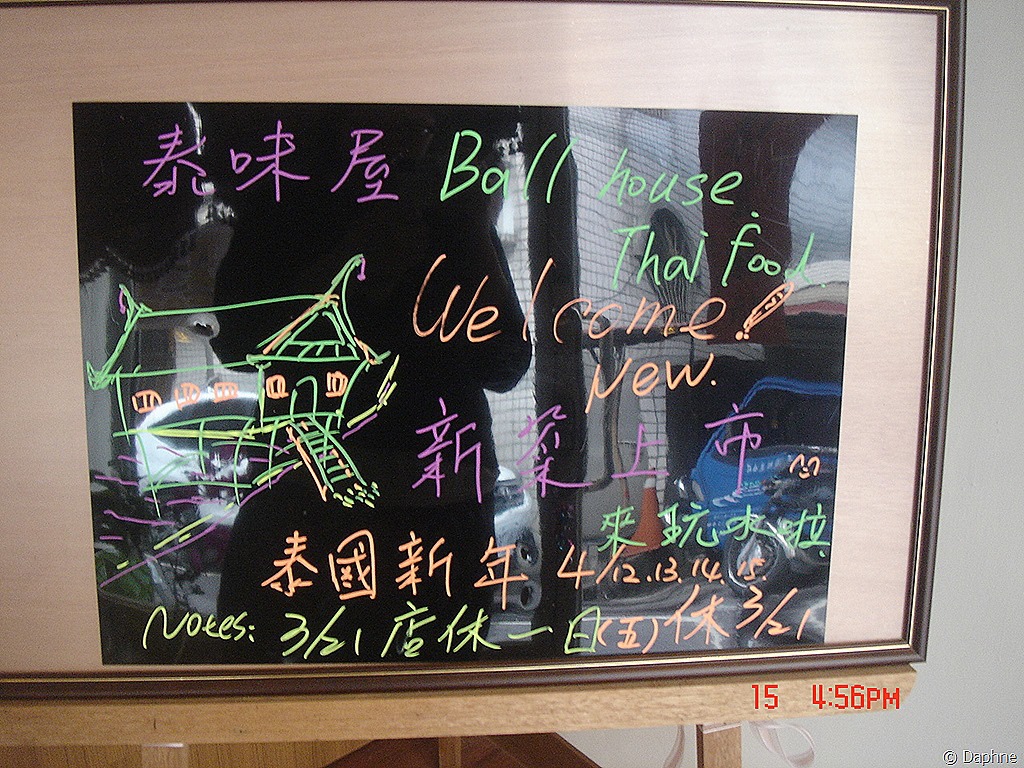 泰味屋 Ball house.
Thai food.
Welcome!
New.
新菜上市
來玩水啦
泰國新年 4/12.13.14.15.
Notes: 3/21 店休一日(五) 休 3/21
15 4:56PM
© Daphne